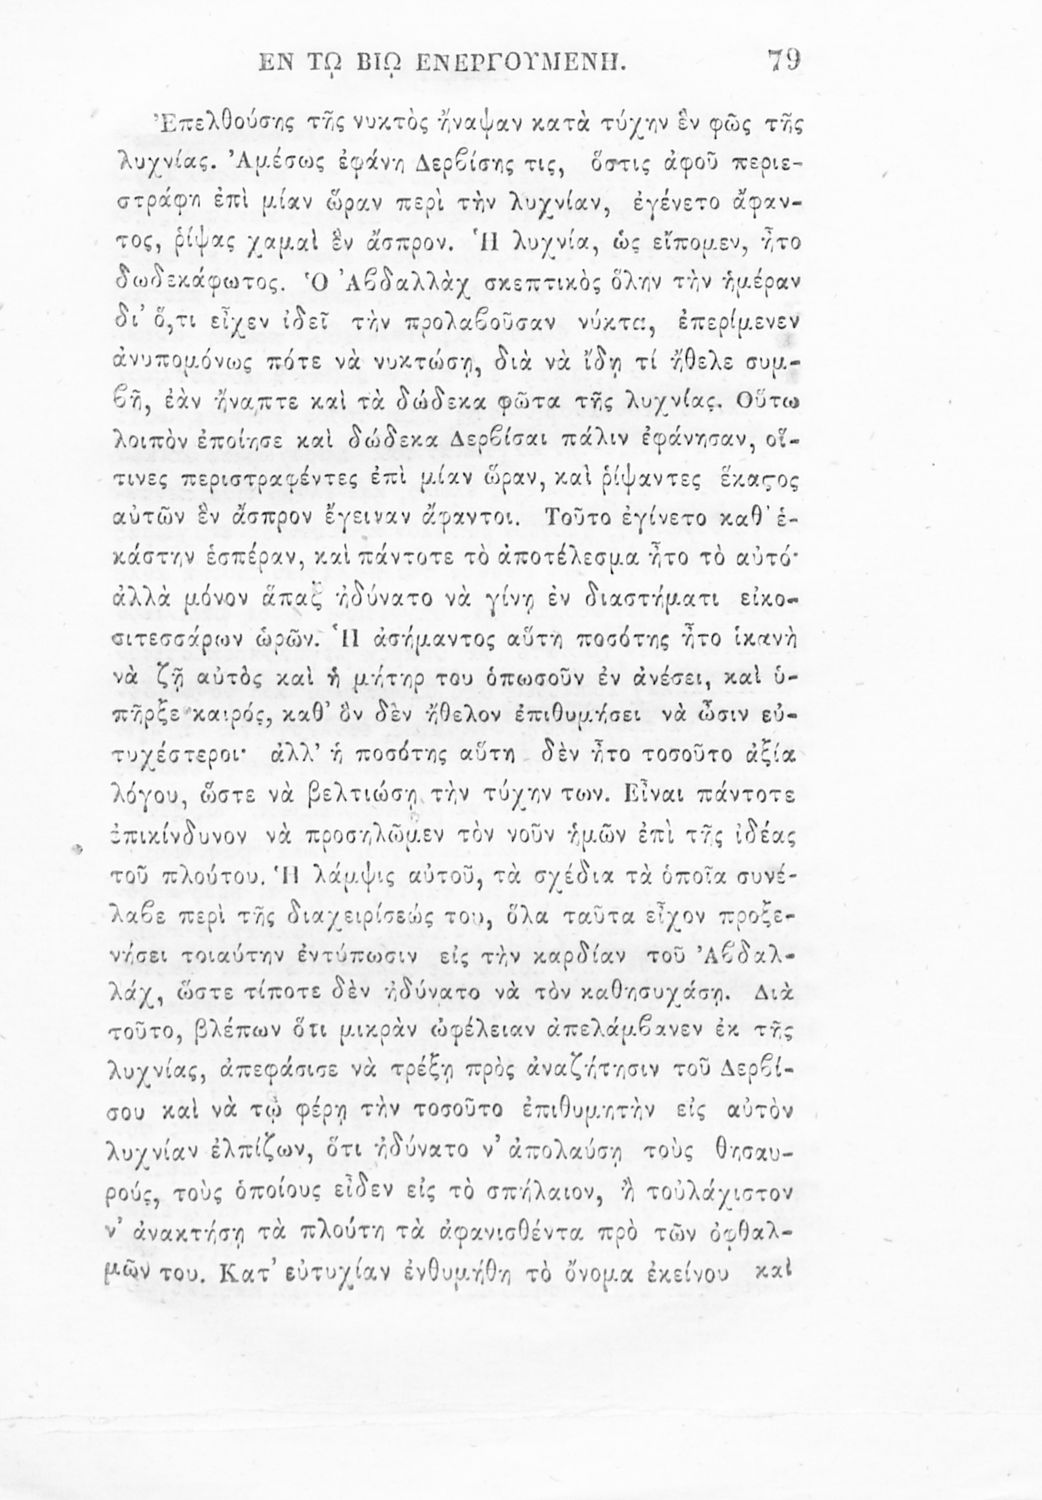 ΕΝ Τῼ ΒΙῼ ΕΝΕΡΓΟΥΜΕΝΗ. 79
Ἐπελθούσης τῆς νυκτὸς ἤναψαν κατὰ τύχην ἓν φῶς τῆς
λυχνίας. Ἀμέσως ἐφάνη Δερβίσης τις, ὅστις ἀφοῦ περιε-
στράφη ἐπὶ μίαν ὥραν περὶ τὴν λυχνίαν, ἐγένετο ἄφαν-
τος, ῥίψας χαμαὶ ἓν ἄσπρον. Ἡ λυχνία, ὡς εἴπομεν, ἦτο
δωδεκάφωτος. Ὁ Ἀβδαλλὰχ σκεπτικὸς ὅλην τὴν ἡμέραν
δι’ ὅ,τι εἶχεν ἰδεῖ τὴν προλαβοῦσαν νύκτα, ἐπερίμενεν
ἀνυπομόνως πότε νὰ νυκτώσῃ, διὰ νὰ ἴδῃ τί ἤθελε συμ-
βῆ, ἐὰν ἤναπτε καὶ τὰ δώδεκα φῶτα τῆς λυχνίας. Οὕτω
λοιπὸν ἐποίησε καὶ δώδεκα Δερβίσαι πάλιν ἐφάνησαν, οἵ-
τινες περιστραφέντες ἐπὶ μίαν ὥραν, καὶ ῥίψαντες ἕκαϛος
αὐτῶν ἓν ἄσπρον ἔγειναν ἄφαντοι. Τοῦτο ἐγίνετο καθ’ ἑ-
κάστην ἑσπέραν, καὶ πάντοτε τὸ ἀποτέλεσμα ἦτο τὸ αὐτό·
ἀλλὰ μόνον ἅπαξ ἠδύνατο νὰ γίνῃ ἐν διαστήματι εἰκο-
σιτεσσάρων ὡρῶν. Ἡ ἀσήμαντος αὕτη ποσότης ἦτο ἱκανὴ
νὰ ζῇ αὐτὸς καὶ ἡ μήτηρ του ὁπωσοῦν ἐν ἀνέσει, καὶ ὑ-
πῆρξε καιρός, καθ’ ὃν δὲν ἤθελον ἐπιθυμήσει νὰ ὦσιν εὐ-
τυχέστεροι· ἀλλ’ ἡ ποσότης αὕτη δὲν ἦτο τοσοῦτο ἀξία
λόγου, ὥστε νὰ βελτιώσῃ τὴν τύχην των. Εἶναι πάντοτε
ἐπικίνδυνον νὰ προσηλῶμεν τὸν νοῦν ἡμῶν ἐπὶ τῆς ἰδέας
τοῦ πλούτου. Ἡ λάμψις αὐτοῦ, τὰ σχέδια τὰ ὁποῖα συνέ-
λαβε περὶ τῆς διαχειρίσεώς του, ὅλα ταῦτα εἶχον προξε-
νήσει τοιαύτην ἐντύπωσιν εἰς τὴν καρδίαν τοῦ Ἀβδαλ-
λάχ, ὥστε τίποτε δὲν ἠδύνατο νὰ τὸν καθησυχάσῃ. Διὰ
τοῦτο, βλέπων ὅτι μικρὰν ὠφέλειαν ἀπελάμβανεν ἐκ τῆς
λυχνίας, ἀπεφάσισε νὰ τρέξῃ πρὸς ἀναζήτησιν τοῦ Δερβί-
σου καὶ νὰ τῷ φέρῃ τὴν τοσοῦτο ἐπιθυμητὴν εἰς αὐτὸν
λυχνίαν ἐλπίζων, ὅτι ἠδύνατο ν’ ἀπολαύσῃ τοὺς θησαυ-
ρούς, τοὺς ὁποίους εἶδεν εἰς τὸ σπήλαιον, ἢ τοὐλάχιστον
ν’ ἀνακτήσῃ τὰ πλούτη τὰ ἀφανισθέντα πρὸ τῶν ὀφθαλ-
μῶν του. Κατ’ εὐτυχίαν ἐνθυμήθη τὸ ὄνομα ἐκείνου καὶ